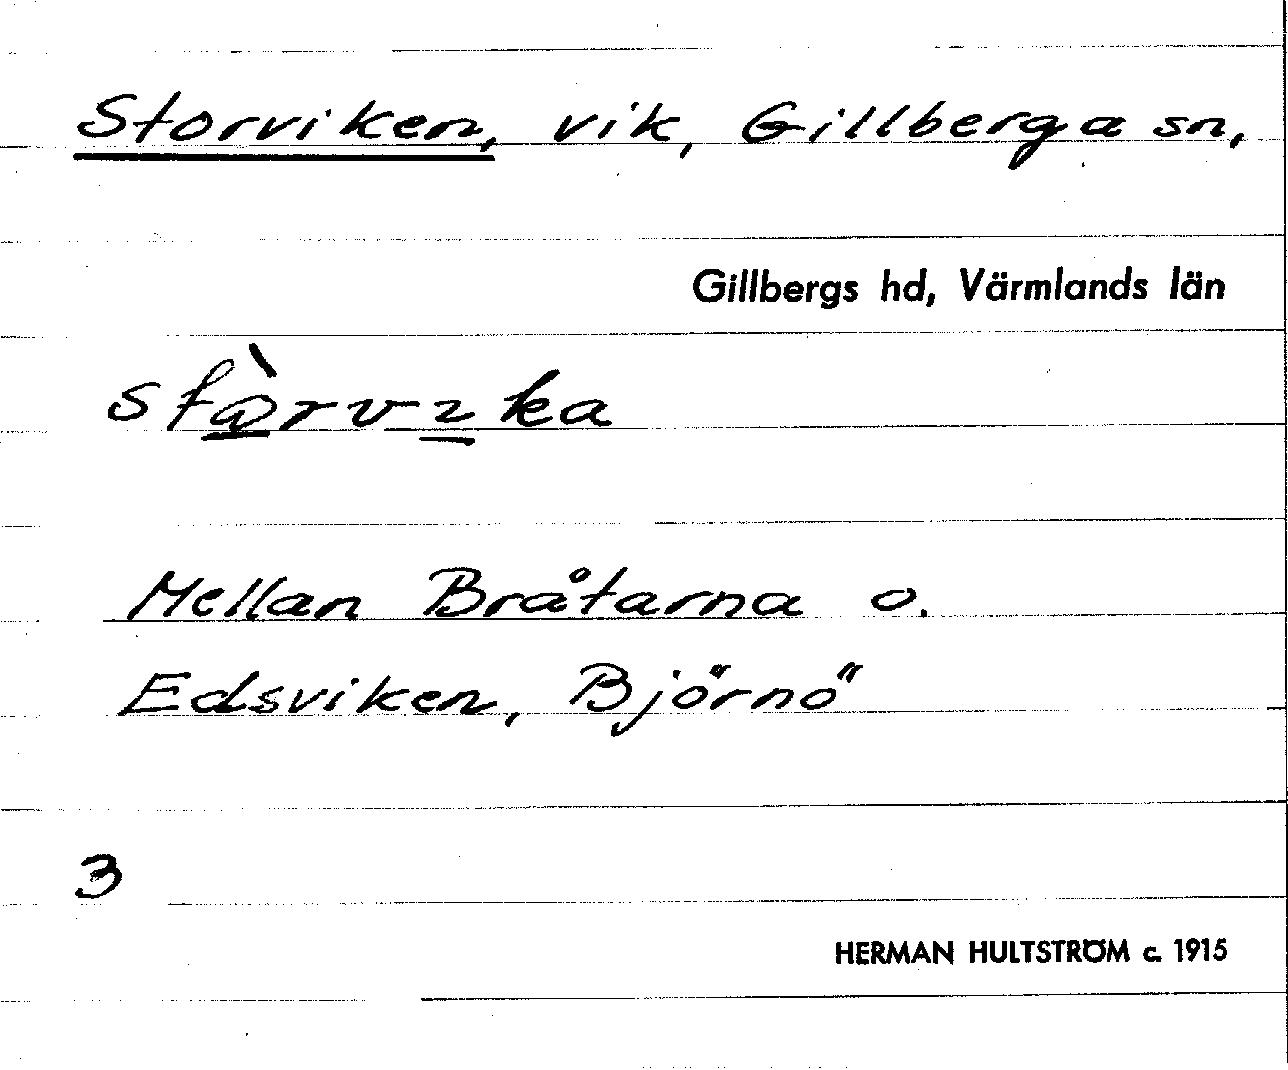 Storviken, vik, Gillberga sn,
Gillbergs hd, Värmlands län
Mellan Bråtarna o.
Edsviken, Björnö
3
HERMAN HULTSTRÖM c. 1915